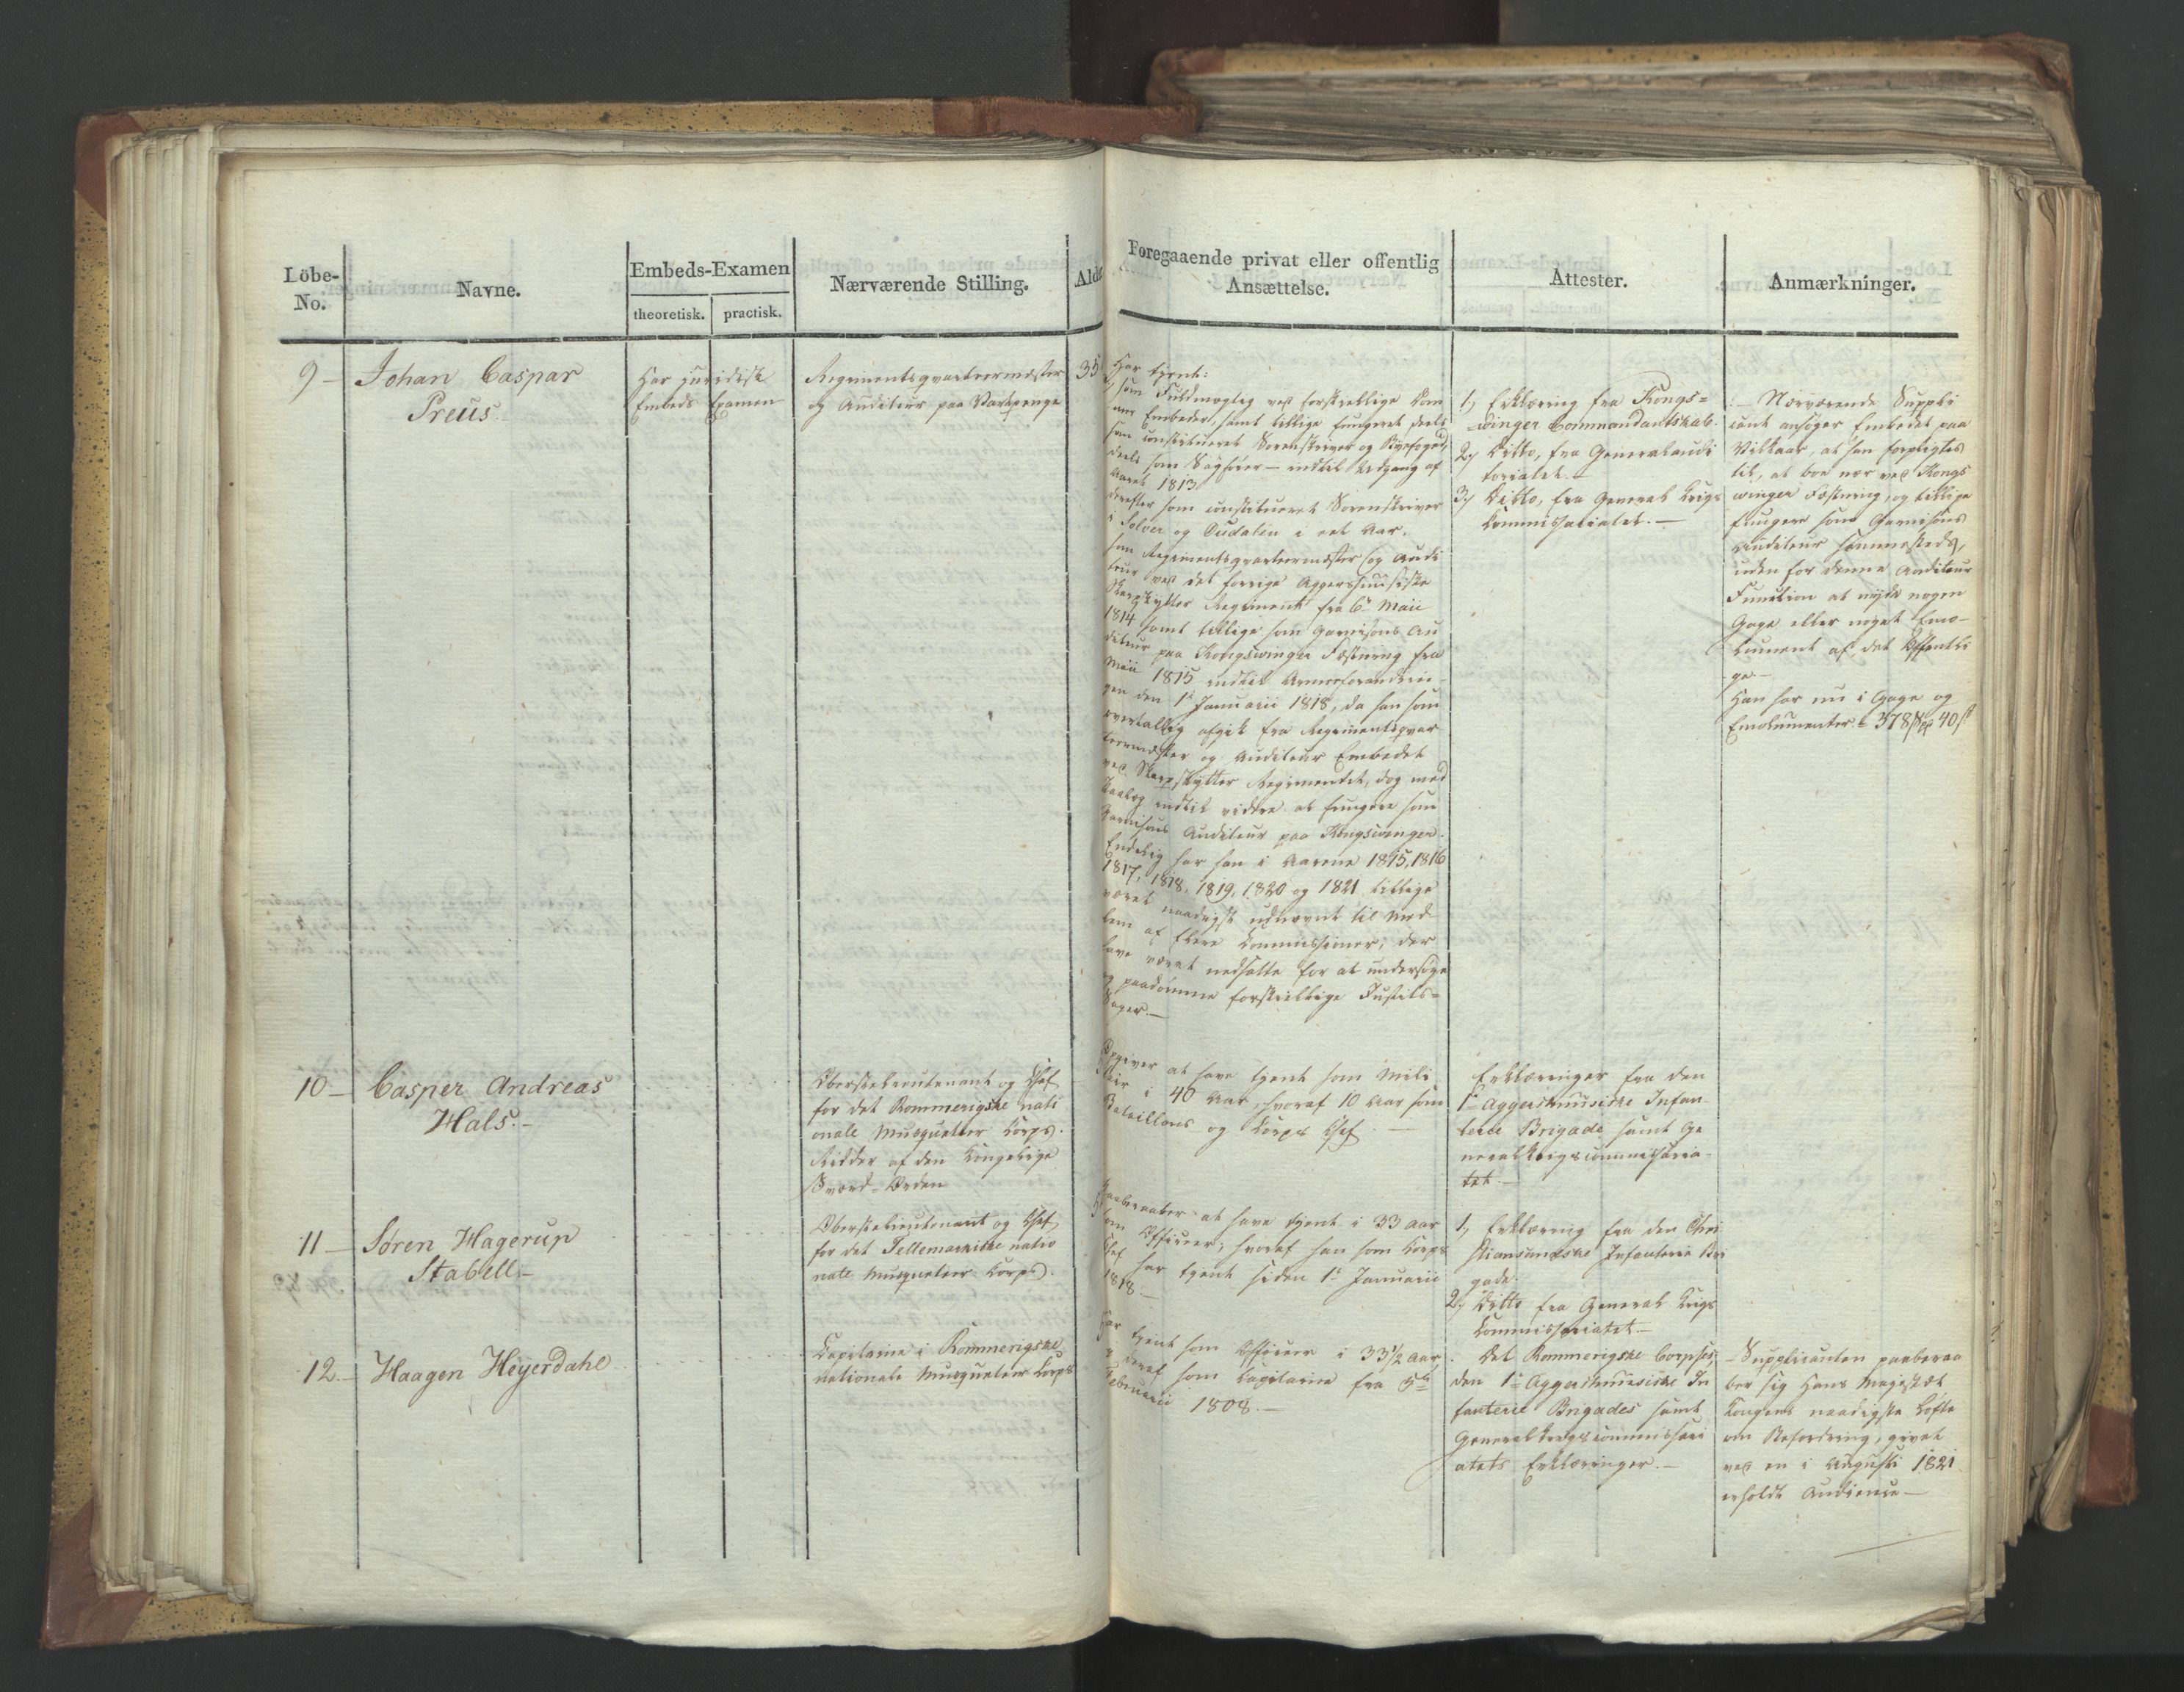 Löbe-
No.
Navne.
Embeds-Examen
theoretisk.
practisk.
Nærværende Stilling.
Alde
Foregaaende privat eller offentlig
Ansættelse.
Attester.
Anmærkninger.
9 –
Johan Caspar
Preus.
Har juridisk
Embeds Examen
Regimentsqvarteermester
og Auditeur paa Vartpenge
35
Har tjent:
som Fuldmægtig ved forskiellige Som
mer Embeder, samt tillige fungeret deels
som constitueret Sorenskriver og Byefoged,
deels som Sagfører – indtil Udgang af
Aaret 1813
derefter som constitueret Sorenskriver
i Soloer og Oudalen i eet Aar.
som Regimentsqvarteermester og Audi
teur ved det forrige Aggershuusiske
Skarpskytter Regiment fra 6te Maii
1814 samt tillige som Garnisons Au
diteur paa Kongswinger Fæstning fra
Maii 1815 indtil Armeeforandrin-
gen den 1te Januarii 1818, da han som
overtallig afgik fra Regimentsqvar
teermester og Auditeur Embedet
ved Skarpskytter Regimentet, dog med
Paalæg indtil videre at fungere som
Garnisons Auditeur paa Kongswinger.
Endelig har han i Aarene 1815, 1816
1817, 1818, 1819, 1820 og 1821 tillige
været naadigst udnævnt til Med-
lem af flere Commissioner, der
have været nedsatte for at undersøge
og paadømme forskiellige Justits-
Sager. –
1, Erklæring fra Kongs-
winger Commandantskab.
2, Ditto, fra Generalaudi
toriatet. –
3, Ditto, fra General Krigs
Commissariatet. –
– Nærværende Suppli
cant ansøger Embedet paa
Vilkaar, at han forpligtes
til, at boe nær ved Kongs
winger Fæstning, og tillige
fungere som Garnisons
Auditeur sammesteds,
uden for denne Auditeur
Function at nyde nogen
Gage eller noget Emo-
lument af det Offentli
ge. –
Han har nu i Gage og
Emolumenter = 378 Spd 40 s
10 –
Casper Andreas
Hals. –
Oberstelieutenant og Chef
for det Rommerigske nati
onale Musqueteer Corps.
Ridder af den Kongelige
Sværd-Orden
Opgiver at have tjent som Mili
tair i 40 Aar, hvoraf 10 Aar som
Bataillons og Corps Chef. –
Erklæringer fra den
1te Aggershuusiske Infan-
terie Brigade samt Ge
neralkrigscommissaria-
tet. –
11 –
Sören Hagerup
Stabell –
Oberstelieutenant og Chef
for det Tellemarkske natio
nale Musqueteer Corps.
Paaberaaber at have tjent i 33 Aar
som Officeer, hvoraf han som Corps
Chef har tjent siden 1te Januarii
1818. –
1, Erklæring fra den Chri
stiansandske Infanterie Bri
gade.
2, Ditto fra General Krigs
Commissariatet. –
12. –
Haagen Heyerdahl
Capitaine i Rommerigske
nationale Musqueteer Corps
Har tjent som Officeer i 33 1/2 Aar,
deraf som Capitaine fra 5te
Februarii 1808. –
Det Rommerigske Corpses,
den 1te Aggershuusiske In
fanterie Brigades samt
Generalkrigscommissari
atets Erklæringer. –
– Supplicanten paaberaa
ber sig Hans Majestæt
Kongens naadigste Løfte
om Befordring, givet
ved en i Augusti 1821
erholdt Audience –